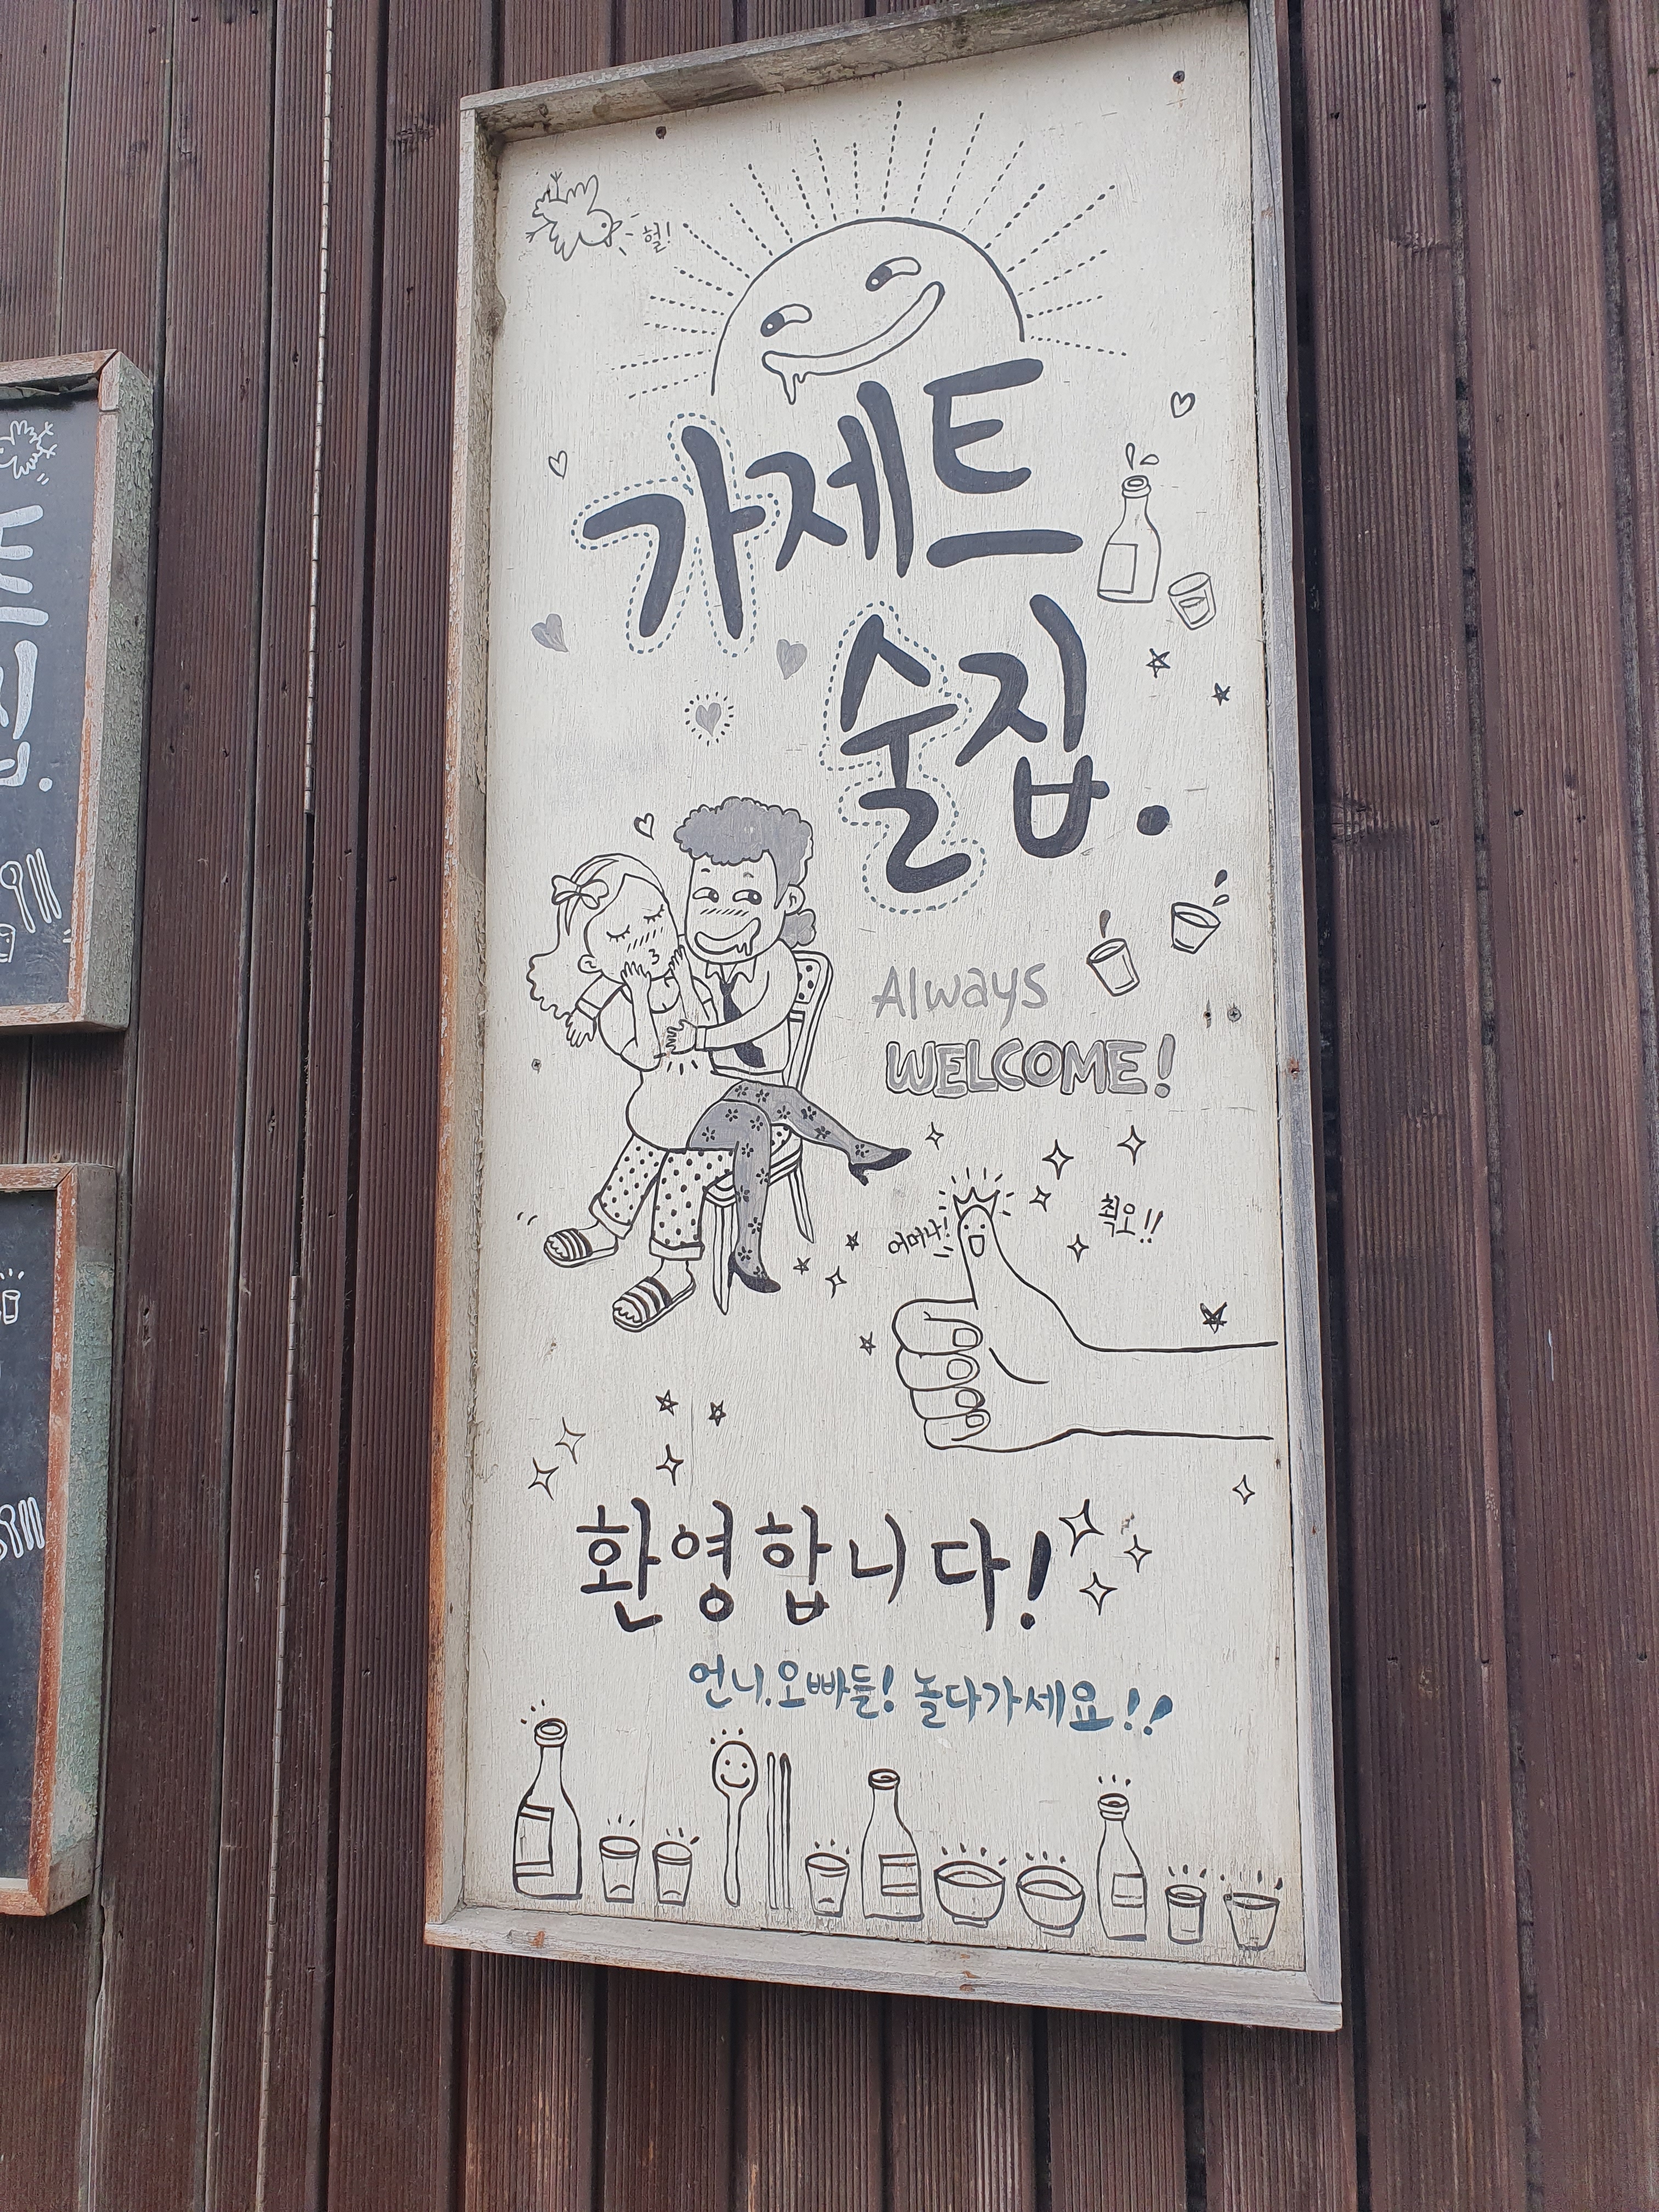 헐!
가제트
술집.
Always
WELCOME!
어머나!
최오!!
환영합니다!
언니.오빠들! 놀다가세요!!